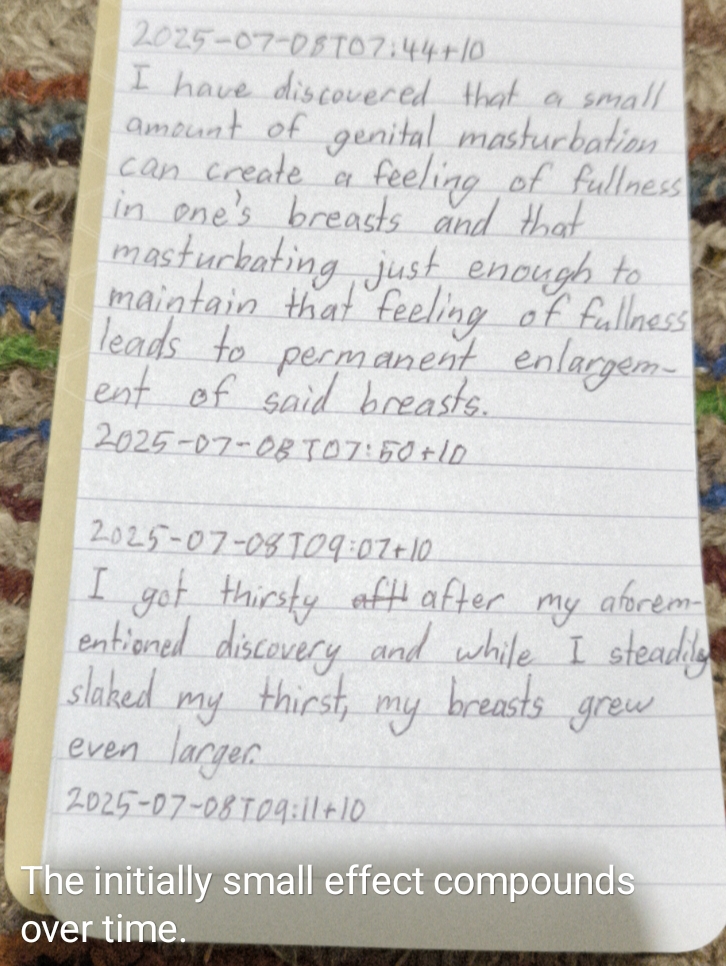 2025-07-08T07:44+10
I have discovered that a small
amount of genital masturbation
can create a feeling of fullness
in one's breasts and that
masturbating just enough to
maintain that feeling of fullness
leads to permanent enlargem-
ent of said breasts.
2025-07-08T07:50+10
2025-07-08T09:07+10
I got thirsty aft after my aforem-
entioned discovery and while I steadily
slaked my thirst, my breasts grew
even larger.
2025-07-08T09:11+10
The initially small effect compounds
over time.